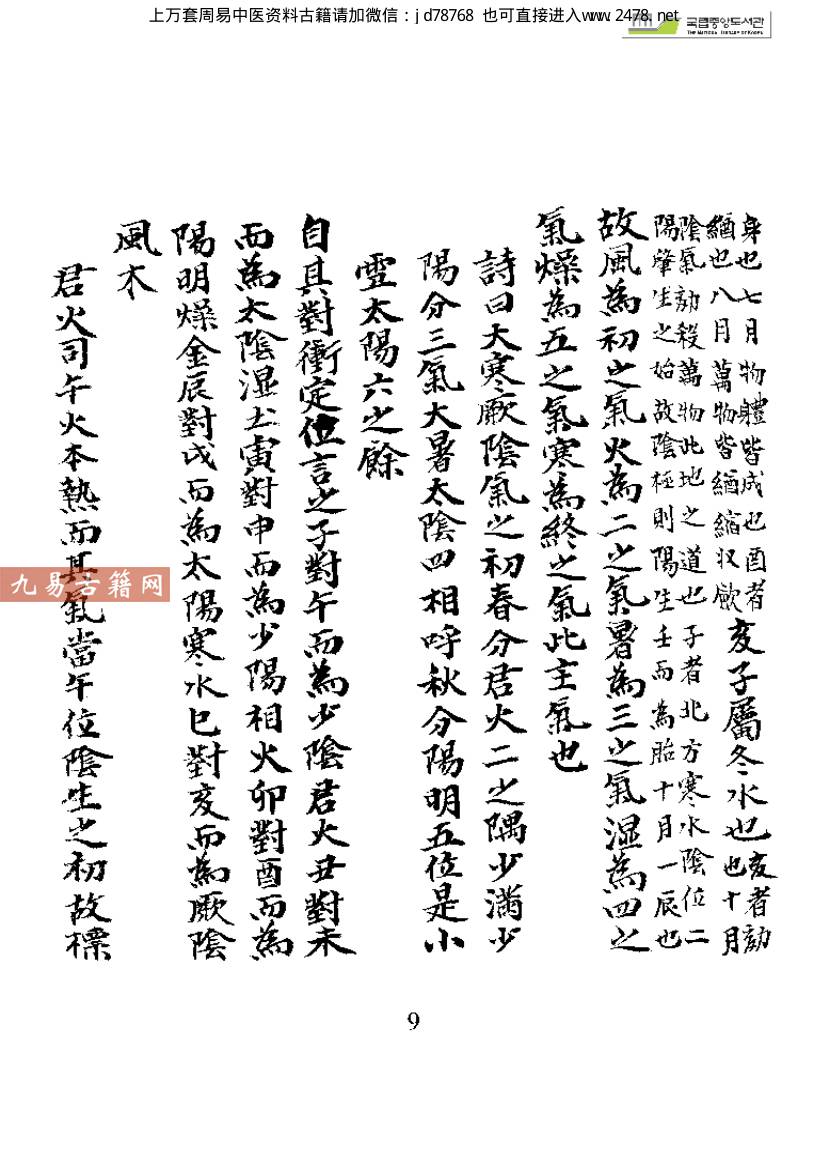 上万套周易中医资料古籍请加微信：jd78768 也可直接进入www.2478.net
국립중앙도서관
THE NATIONAL LIBRARY OF KOREA
身也七月物軆皆成也酉者
緧也八月萬物皆緧縮収歛
亥子屬冬水也
亥者劾
也十月
陰氣劾殺萬物此地之道也子者北方寒水陰位二
陽肇生之始故陰極則陽生壬而為胎十月一辰也
故風為初之氣火為二之氣暑為三之氣湿為四之
氣燥為五之氣寒為終之氣此主氣也
詩曰大寒厥陰氣之初春分君火二之隅少滿少
陽分三氣大暑太陰四相呼秋分陽明五位是小
雪太陽六之餘
自其對衝定位言之子對午而為少陰君火丑對未
而為太陰湿土寅對申而為少陽相火卯對酉而為
陽明燥金辰對戌而為太陽寒水巳對亥而為厥陰
風木
君火司午火本熱而其氣當午位陰生之初故標
九易古籍网
9